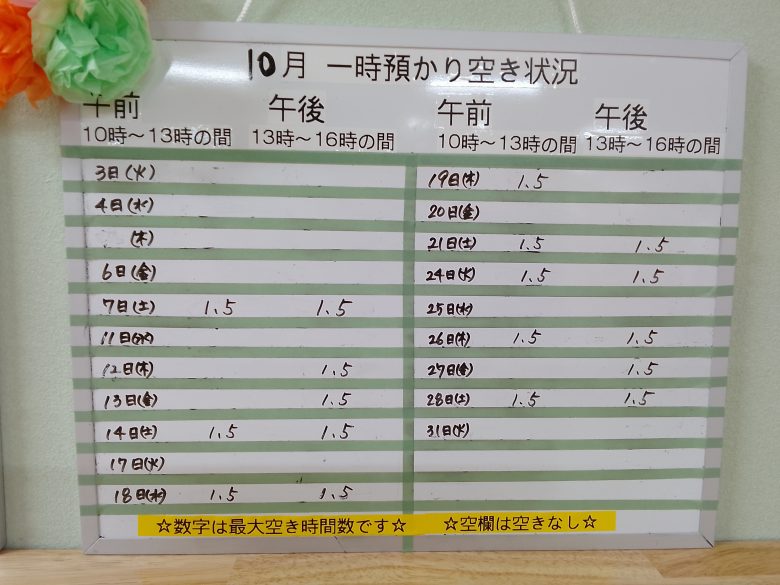 10月 一時預かり空き状況
午前 午後
10時～13時の間 13時～16時の間
3日(火)
4日(水)
(木)
6日(金)
7日(土) 1.5 1.5
11日(水)
12日(木) 1.5
13日(金) 1.5
14日(土) 1.5 1.5
17日(火)
18日(水) 1.5 1.5
午前 午後
10時～13時の間 13時～16時の間
19日(木) 1.5
20日(金)
21日(土) 1.5 1.5
24日(火) 1.5 1.5
25日(水)
26日(木) 1.5 1.5
27日(金) 1.5
28日(土) 1.5 1.5
31日(火)
☆数字は最大空き時間数です☆ ☆空欄は空きなし☆